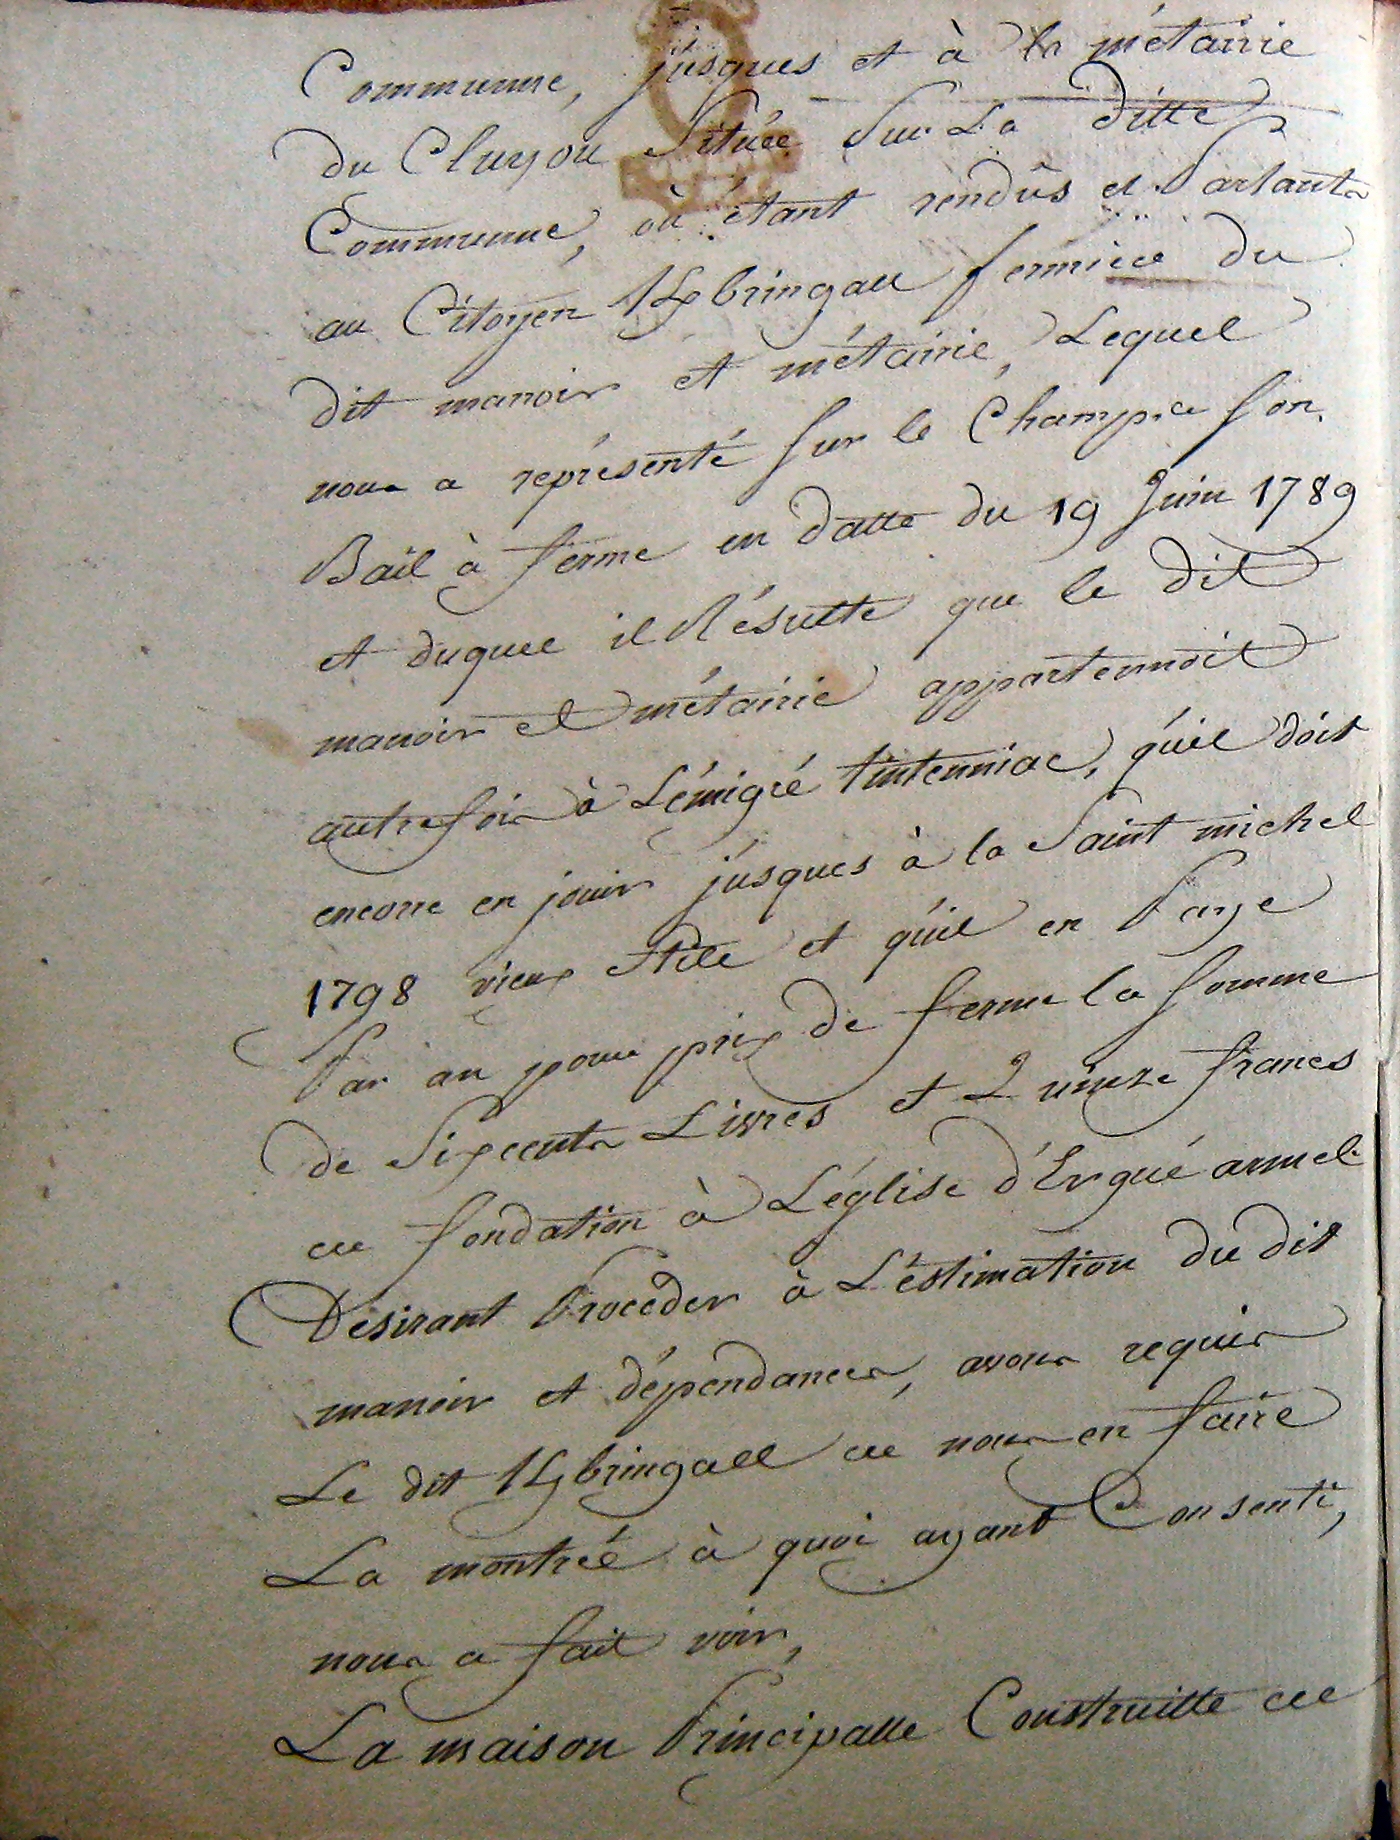 Communne, jusques et à la métairie
du Cluyou située sur La ditte
Communne, où étant rendûs et Parlants
au Citoyen Kbringall fermier du
dit manoir et métairie, Lequel
nous a représenté sur le Champs son
Bail à ferme en datte du 19 Juin 1789
et duquel il Résulte que le dit
manoir et métairie appartennoit
autrefois à L'émigré tintenniac, qu'il doit
encorre en jouir jusques à la Saint michel
1798 vieux stile et qu'il en Paye
Par an pour prix de ferme la somme
de Six cents Livres et Quinze francs
de fondation à L'église d'Ergué armel
Désirant Procéder à L'éstimation du dit
manoir et dépendances, avons requis
Le dit Kbringall de nous en faire
La montrée à quoi ayant Consenti,
nous a fait voir,
La maison Principalle Construitte de